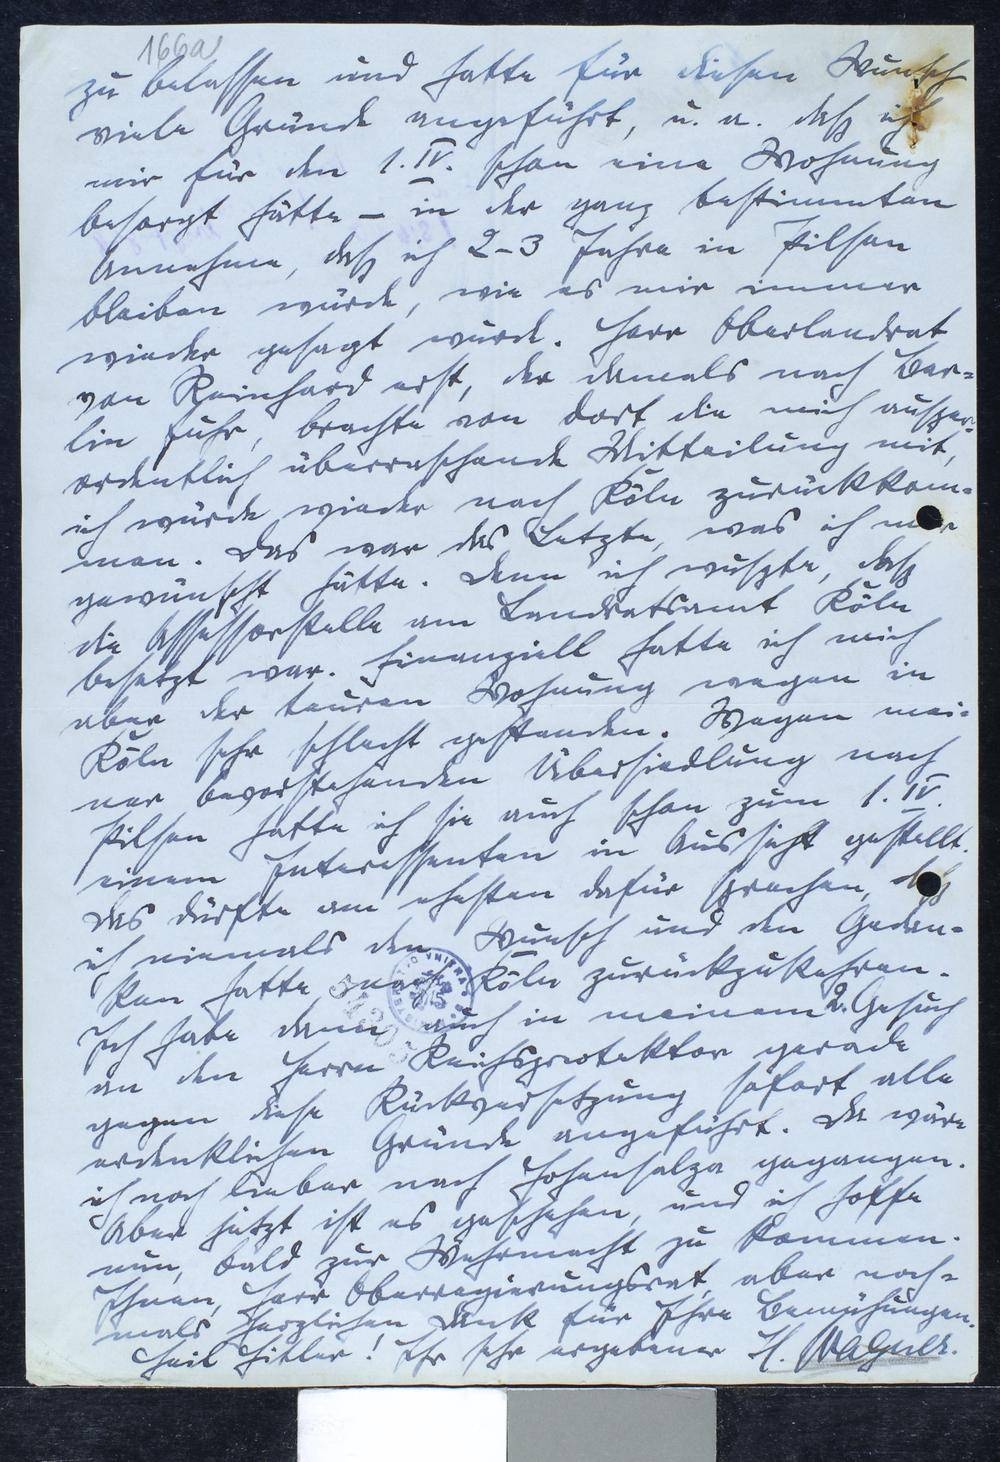 166a
zu belassen und hatte für diesen Wunsch
viele Gründe angeführt, u. a. daß ich
mir für den 1. IV. schon eine Wohnung
besorgt hätte – in der ganz bestimmten
Annahme, daß ich 2–3 Jahre in Pilsen
bleiben würde, wie es mir immer
wieder gesagt wurde. Herr Oberlandrat
von Reinhard erst, der damals nach Ber=
lin fuhr, brachte von dort die mich außer=
ordentlich überraschende Mitteilung mit,
ich würde wieder nach Köln zurückkom=
men. Das war das Letzte, was ich mir
gewünscht hätte. Denn ich wußte, daß
die Assessorstelle am Landratsamt Köln
besetzt war. Finanziell hatte ich mich
aber der teuren Wohnung wegen in
Köln sehr schlecht gestanden. Wegen mei=
ner bevorstehenden Übersiedlung nach
Pilsen hatte ich sie auch schon zum 1. IV.
einem Interessenten in Aussicht gestellt.
Das dürfte am ehesten dafür sprechen, daß
ich niemals den Wunsch und den Gedan=
ken hatte, nach Köln zurückzukehren.
Ich habe denn auch in meinem 2. Gesuch
an den Herrn Reichsprotektor gerade
gegen diese Rückversetzung sofort alle
erdenklichen Gründe angeführt. Da wäre
ich noch lieber nach Hohensalza gegangen.
Aber jetzt ist es geschehen, und ich hoffe
nun, bald zur Wehrmacht zu kommen.
Ihnen, Herr Oberregierungsrat, aber noch=
mals herzlichen Dank für Ihre Bemühungen.
Heil Hitler! Ihr sehr ergebener H. Wagner.